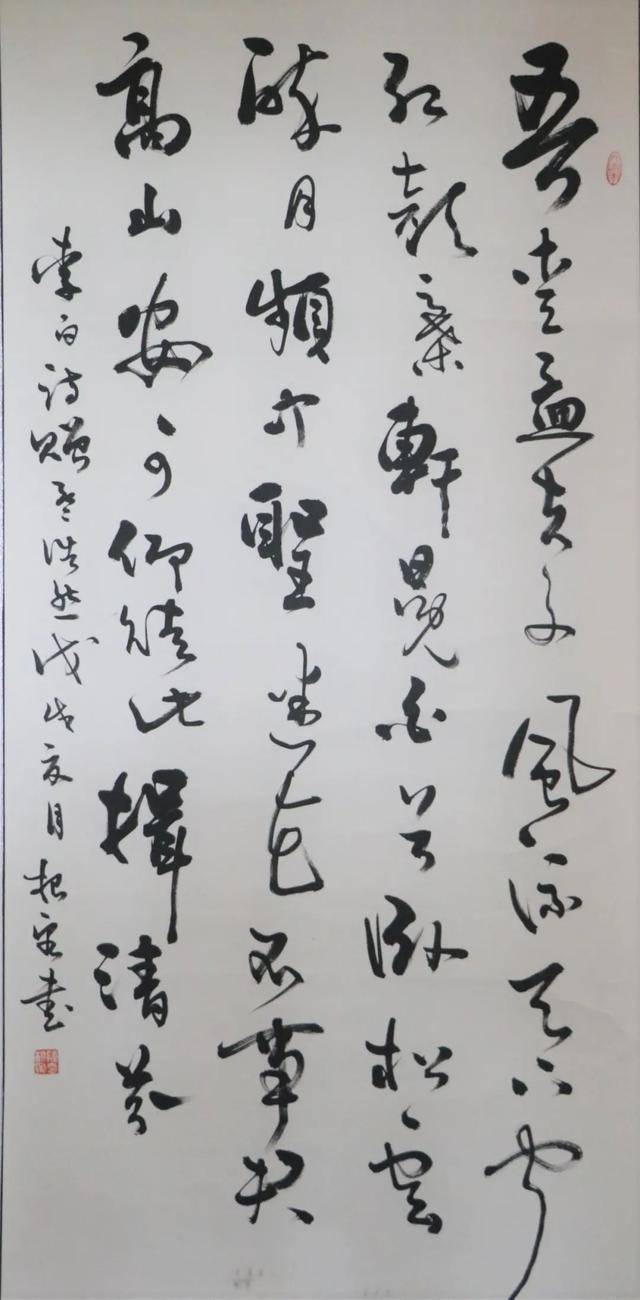 吾爱孟夫子風流天下闻
红颜棄軒冕白首卧松雲
醉月頻中聖迷花不事君
高山安可仰徒此揖清芬
李白诗赠孟浩然戊戌夏月书